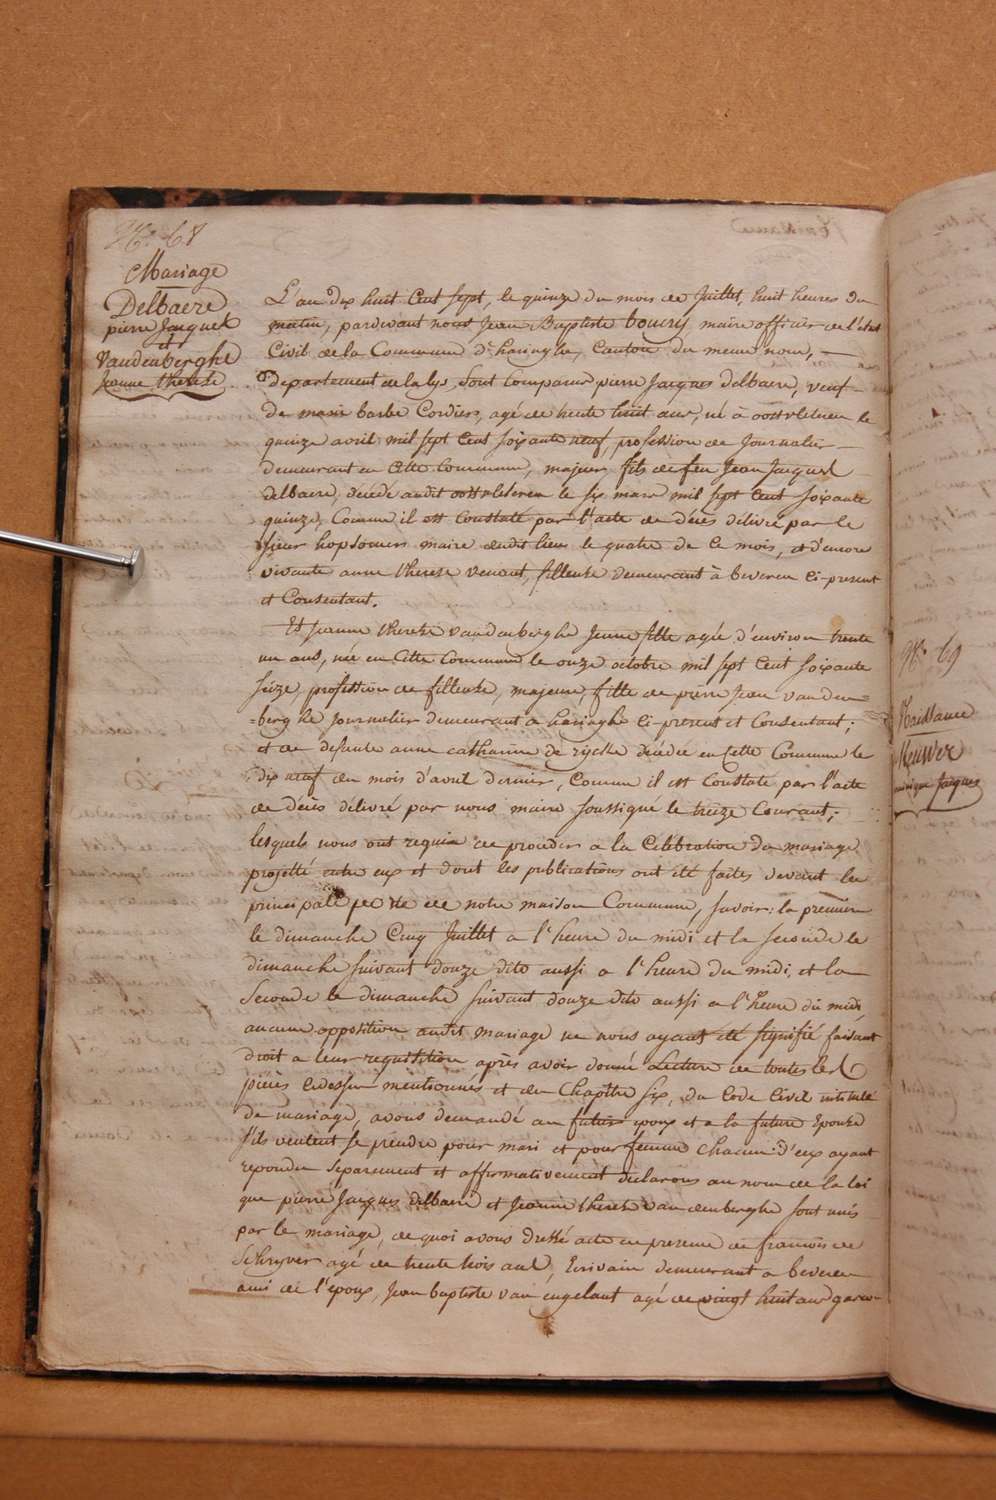 No. 68
Mariage
Delbaere
pierre Jacques
et
Vandenberghe
Jeanne therese
L'an dix huit Cent sept, le quinze du mois de Juillet, huit heures du
matin, pardevant nous Jean Baptiste boucry maire officier de l'état
Civil de la Commune d'haringhe, Canton du meme nom,
departement de la lys, sont Comparus pierre Jacques Delbaere, veuf
de marie barbe Cordier, agé de trente huit ans, né à oostvleteren le
quinze avril mil sept Cent soixante neuf, profession de Journalier
demeurant en Cette Commune, majeur, fils de feu Jean Jacques
delbaere, décédé audit oostvleteren le six mars mil sept Cent soixante
quinze, Comme il est Constaté par l'acte de décès délivré par le
sieur hopsomers maire dudit lieu le quatre de Ce mois, et d'encore
vivante anne therese venant, filleuse demeurant à beveren Ci-present
et Consentant.
Et Jeanne therese vandenberghe Jeune fille agée d'environ trente
un ans, née en Cette Commune le onze octobre mil sept Cent soixante
seize, profession de filleuse, majeure, fille de pierre Jean vanden=
=berghe Journalier demeurant a haringhe Ci-present et Consentant;
et de defunte anne catharine de rycke décédée en Cette Commune le
dix neuf du mois d'avril dernier, Comme il est Constaté par l'acte
de décès délivré par nous maire soussigné le treize Courant;
lesquels nous ont requis de proceder a la Célébration du mariage
projetté entre eux et dont les publications ont été faites devant la
principale porte de notre maison Commune, savoir: la premiere
le dimanche Cinq Juillet a l'heure du midi et la seconde le
dimanche suivant douze dito aussi a l'heure du midi, et la
seconde le dimanche suivant douze dito aussi a l'heure du midi
aucune opposition audit mariage ne nous ayant été signifié faisant
droit a leur requisition après avoir donné Lecture de toutes les
pièces cidessus mentionnés et du Chapitre six, du Code Civil intitulé
de mariage, avons demandé au futur epoux et a la future Epouse
s'ils veulent se prendre pour mari et pour femme chacun d'eux ayant
repondu separement et affirmativement declarons au nom de la loi
que pierre Jacques delbaere et Jeanne therese vandenberghe sont unis
par le mariage, de quoi avons dressé acte en presence de francois de
Schryver agé de trente trois ans, Ecrivain demeurant a beveren
ami de l'epoux, Jean baptiste van engelant agé de vingt huit ans garcon
No. 69
Naissance
Meuwer
Jacques